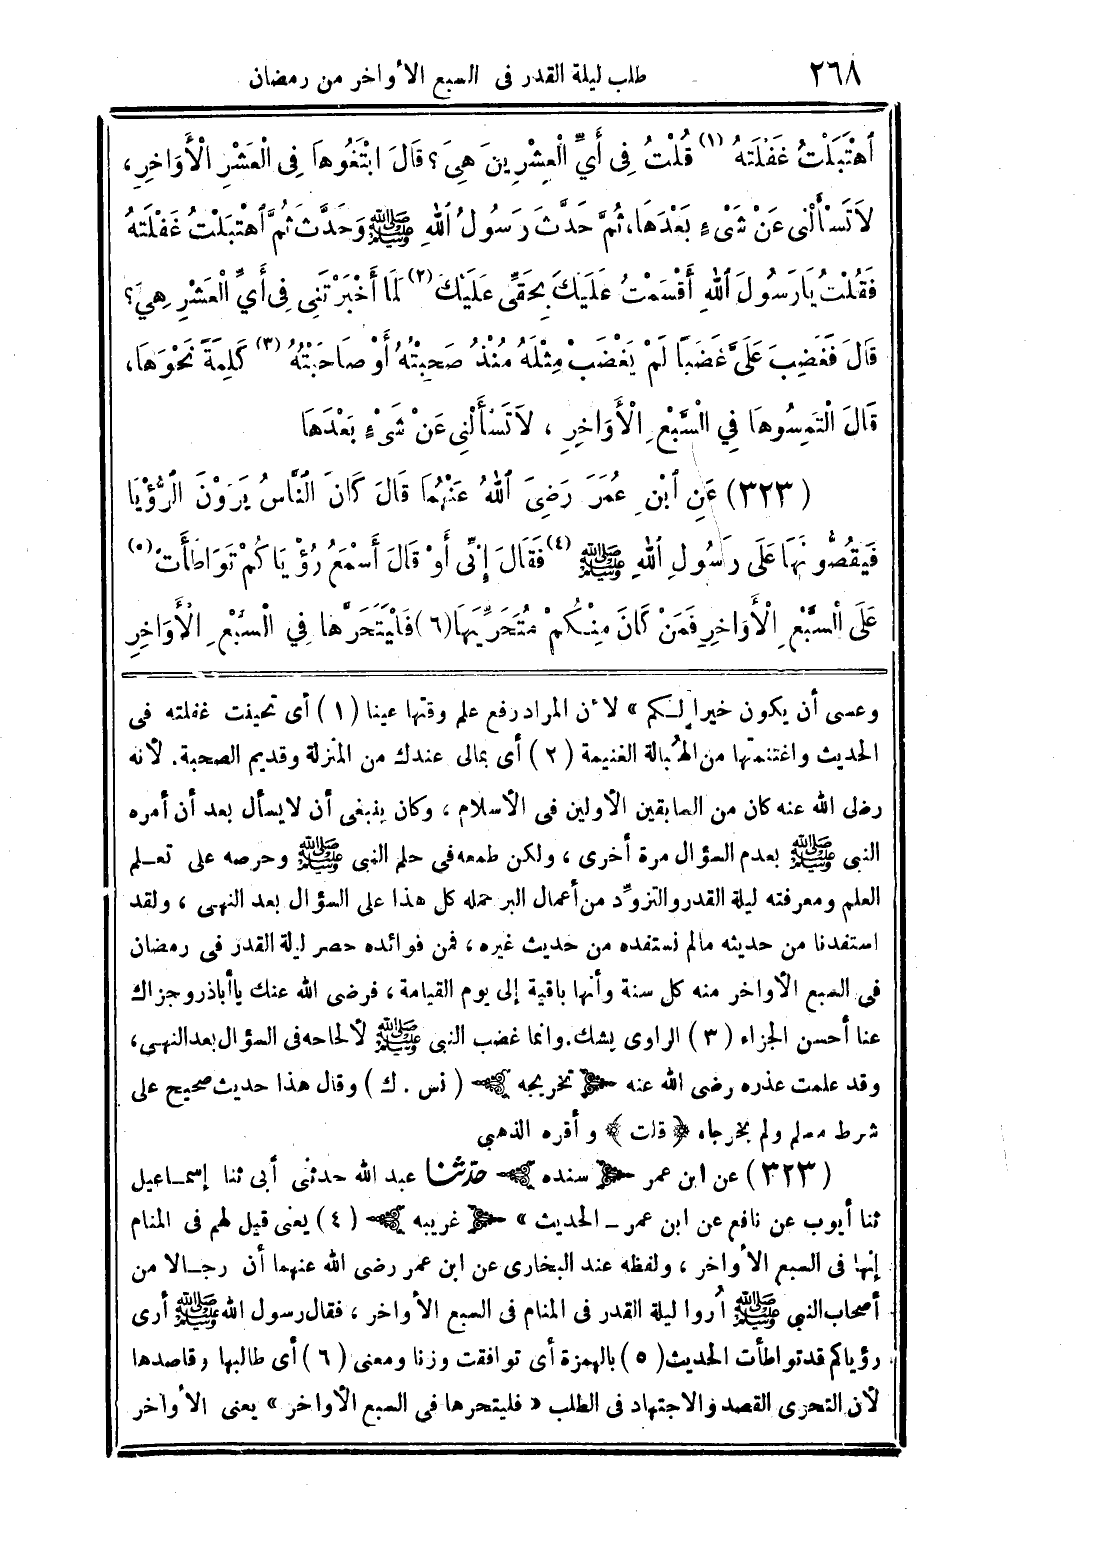 ٢٦٨ طلب ليلة القدر فى السبع الأواخر من رمضان
اَهْتَبَلْتُ غَفْلَتَهُ (١) قُلْتُ فِى أَيِّ الْعِشْرِينَ هِيَ؟ قَالَ ابْتَغُوهَا فِى الْعَشْرِ الْأَوَاخِرِ ،
لاَ تَسْأَلْنِى عَنْ شَىْءٍ بَعْدَهَا، ثُمَّ حَدَّثَ رَسُولُ اللهِ ﷺ وَحَدَّثَ ثُمَّ اَهْتَبَلْتُ غَفْلَتَهُ
فَقُلْتُ يَا رَسُولَ اللهِ أَقْسَمْتُ عَلَيْكَ بِحَقِّى عَلَيْكَ (٢) لَمَا أَخْبَرْتَنِى فِى أَيِّ الْعَشْرِ هِيَ؟
قَالَ فَغَضِبَ عَلَىَّ غَضَبًا لَمْ يَغْضَبْ مِثْلَهُ مُنْذُ صَحِبْتُهُ أَوْ صَاحَبْتُهُ (٣) كَلِمَةً نَحْوَهَا،
قَالَ الْتَمِسُوهَا فِي السَّبْعِ الْأَوَاخِرِ ، لاَ تَسْأَلْنِى عَنْ شَىْءٍ بَعْدَهَا
(٣٢٣) عَنِ ابْنِ عُمَرَ رَضِىَ اللهُ عَنْهُمَا قَالَ كَانَ النَّاسُ يَرَوْنَ الرُّؤْيَا
فَيَقُصُّونَهَا عَلَى رَسُولِ اللهِ ﷺ (٤) فَقَالَ إِنِّى أَوْ قَالَ أَسْمَعُ رُؤْيَاكُمْ تَوَاطَأَتْ (٥)
عَلَى السَّبْعِ الْأَوَاخِرِ فَمَنْ كَانَ مِنْكُمْ مُتَحَرِّيَهَا (٦) فَلْيَتَحَرَّهَا فِي السَّبْعِ الْأَوَاخِرِ
وعسى أن يكون خيرا لكم » لأن المراد رفع علم وقتها عينا (١) أى تحينت غفلته فى
الحديث واغتنمتها من الهُبالة الغنيمة (٢) أى بمالى عندك من المنزلة وقديم الصحبة. لأنه
رضى الله عنه كان من السابقين الأولين فى الأسلام ، وكان ينبغى أن لا يسأل بعد أن أمره
النبى ﷺ بعدم السؤال مرة أخرى ، ولكن طمعه فى حلم النبى ﷺ وحرصه على تعـلم
العلم ومعرفته ليلة القدر والتزوّد من أعمال البر حمله كل هذا على السؤال بعد النهى ، ولقد
استفدنا من حديثه مالم نستفده من حديث غيره ، فمن فوائده حصر ليلة القدر فى رمضان
فى السبع الأواخر منه كل سنة وأنها باقية إلى يوم القيامة ، فرضى الله عنك ياأباذر وجزاك
عنا أحسن الجزاء (٣) الراوى يشك. وانما غضب النبى ﷺ لألحاحه فى السؤال بعد النهى ،
وقد علمت عذره رضى الله عنه تخريجه ( نس . ك ) وقال هذا حديث صحيح على
شرط مسلم ولم يخرجاه ﴿ قلت ﴾ وأقره الذهبي
(٣٢٣) عن ابن عمر سنده حدّثنا عبد الله حدثنى أبى ثنا إسمـاعيل
ثنا أيوب عن نافع عن ابن عمر ــ الحديث » غريبه (٤) يعنى قيل لهم فى المنام
إنها فى السبع الأواخر ، ولفظه عند البخارى عن ابن عمر رضى الله عنهما أن رجـالا من
أصحاب النبى ﷺ أُروا ليلة القدر فى المنام فى السبع الأواخر ، فقال رسول الله ﷺ أرى
رؤياكم قد تواطأت الحديث (٥) بالهمزة أى توافقت وزنا ومعنى (٦) أى طالبها وقاصدها
لأن التحرى القصد والاجتهاد فى الطلب « فليتحرها فى السبع الأواخر » يعنى الأواخر